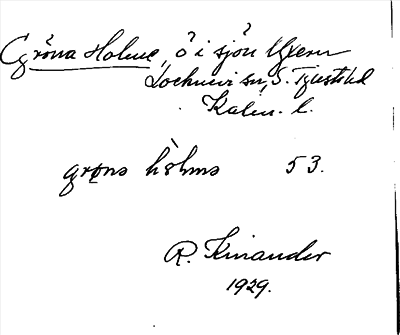 Gröna Holme, ö i sjön Yxern
Locknevi sn, S. Tjusts hd
Kalm. l.
grøna hòlmə 53.
R. Kinander
1929.